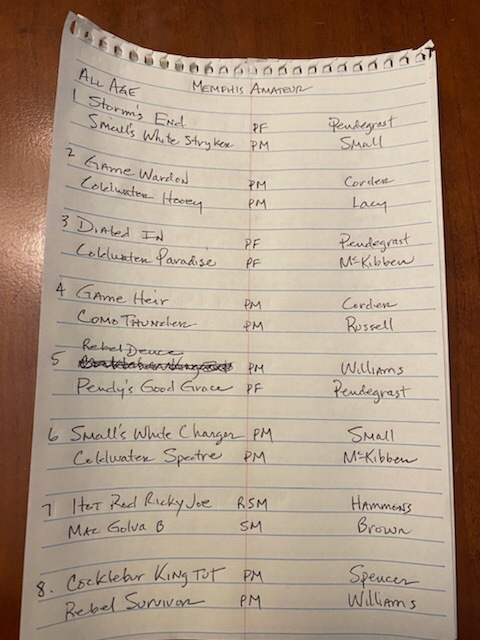 All Age Memphis Amateur
1 Storm's End PF Pendegrast
Small's White Stryker PM Small
2 Game Wardon PM Corder
Coldwater Hooey PM Lacy
3 Dialed In PF Pendegrast
Coldwater Paradise PF McKibben
4 Game Heir PM Corder
Como Thunder PM Russell
Rebel Deuce
5 PM Williams
Pendy's Good Grace PF Pendegrast
6 Small's White Charger PM Small
Coldwater Spectre PM McKibben
7 Hot Rod Ricky Joe RSM Hammons
Mac Golva B SM Brown
8. Cocklebur King Tut PM Spencer
Rebel Survivor PM Williams